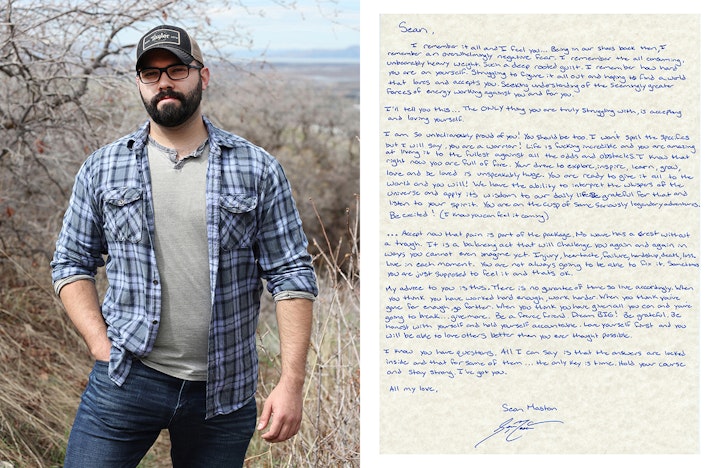 Taylor
Sean,
I remember it all and I feel you... Being in our shoes back then, I
remember an overwhelmingly negative fear. I remember the all consuming,
unbearably heavy weight. Such a deep rooted guilt. I remember how hard
you are on yourself. Struggling to figure it all out and hoping to find a world
that loves and accepts you. Seeking understanding of the seemingly greater
forces of energy working against you and for you.
I'll tell you this... The ONLY thing you are truly struggling with, is accepting
and loving yourself.
I am so unbelievably proud of you! You should be too. I won't spoil the specifics
but I will say, you are a warrior! Life is fucking incredible and you are amazing
at living it to the fullest against all the odds and obstacles. I know that
right now you are full of fire. Your drive to explore, inspire, learn, grow,
love and be loved is unspeakably huge. You are ready to give it all to the
world and you will! We have the ability to interpret the whispers of the
universe and apply its wisdom to our daily life. Be grateful for that and
listen to your spirit. You are on the cusp of some seriously legendary adventures.
Be excited! (I know you can feel it coming)
... Accept now that pain is part of the package. No wave has a crest without
a trough. It is a balancing act that will challenge you again and again in
ways you cannot even imagine yet. Injury, heartache, failure, hardship, death, loss,
live in each moment. You are not always going to be able to fix it. Sometimes
you are just supposed to feel it and that's ok.
My advice to you is this. There is no gurantee of time so live accordingly. When
you think you have worked hard enough, work harder. When you think you've
gone far enough, go farther. When you think you have given all you can and you're
going to break... give more. Be a fierce friend. Dream BIG! Be grateful. Be
honest with yourself and hold yourself accountable. Love yourself first and you
will be able to love others better than you ever thought possible.
I know you have questions. All I can say is that the answers are locked
inside and that for some of them... the only key is time. Hold your course
and stay strong. I've got you.
All my love,
Sean Maston